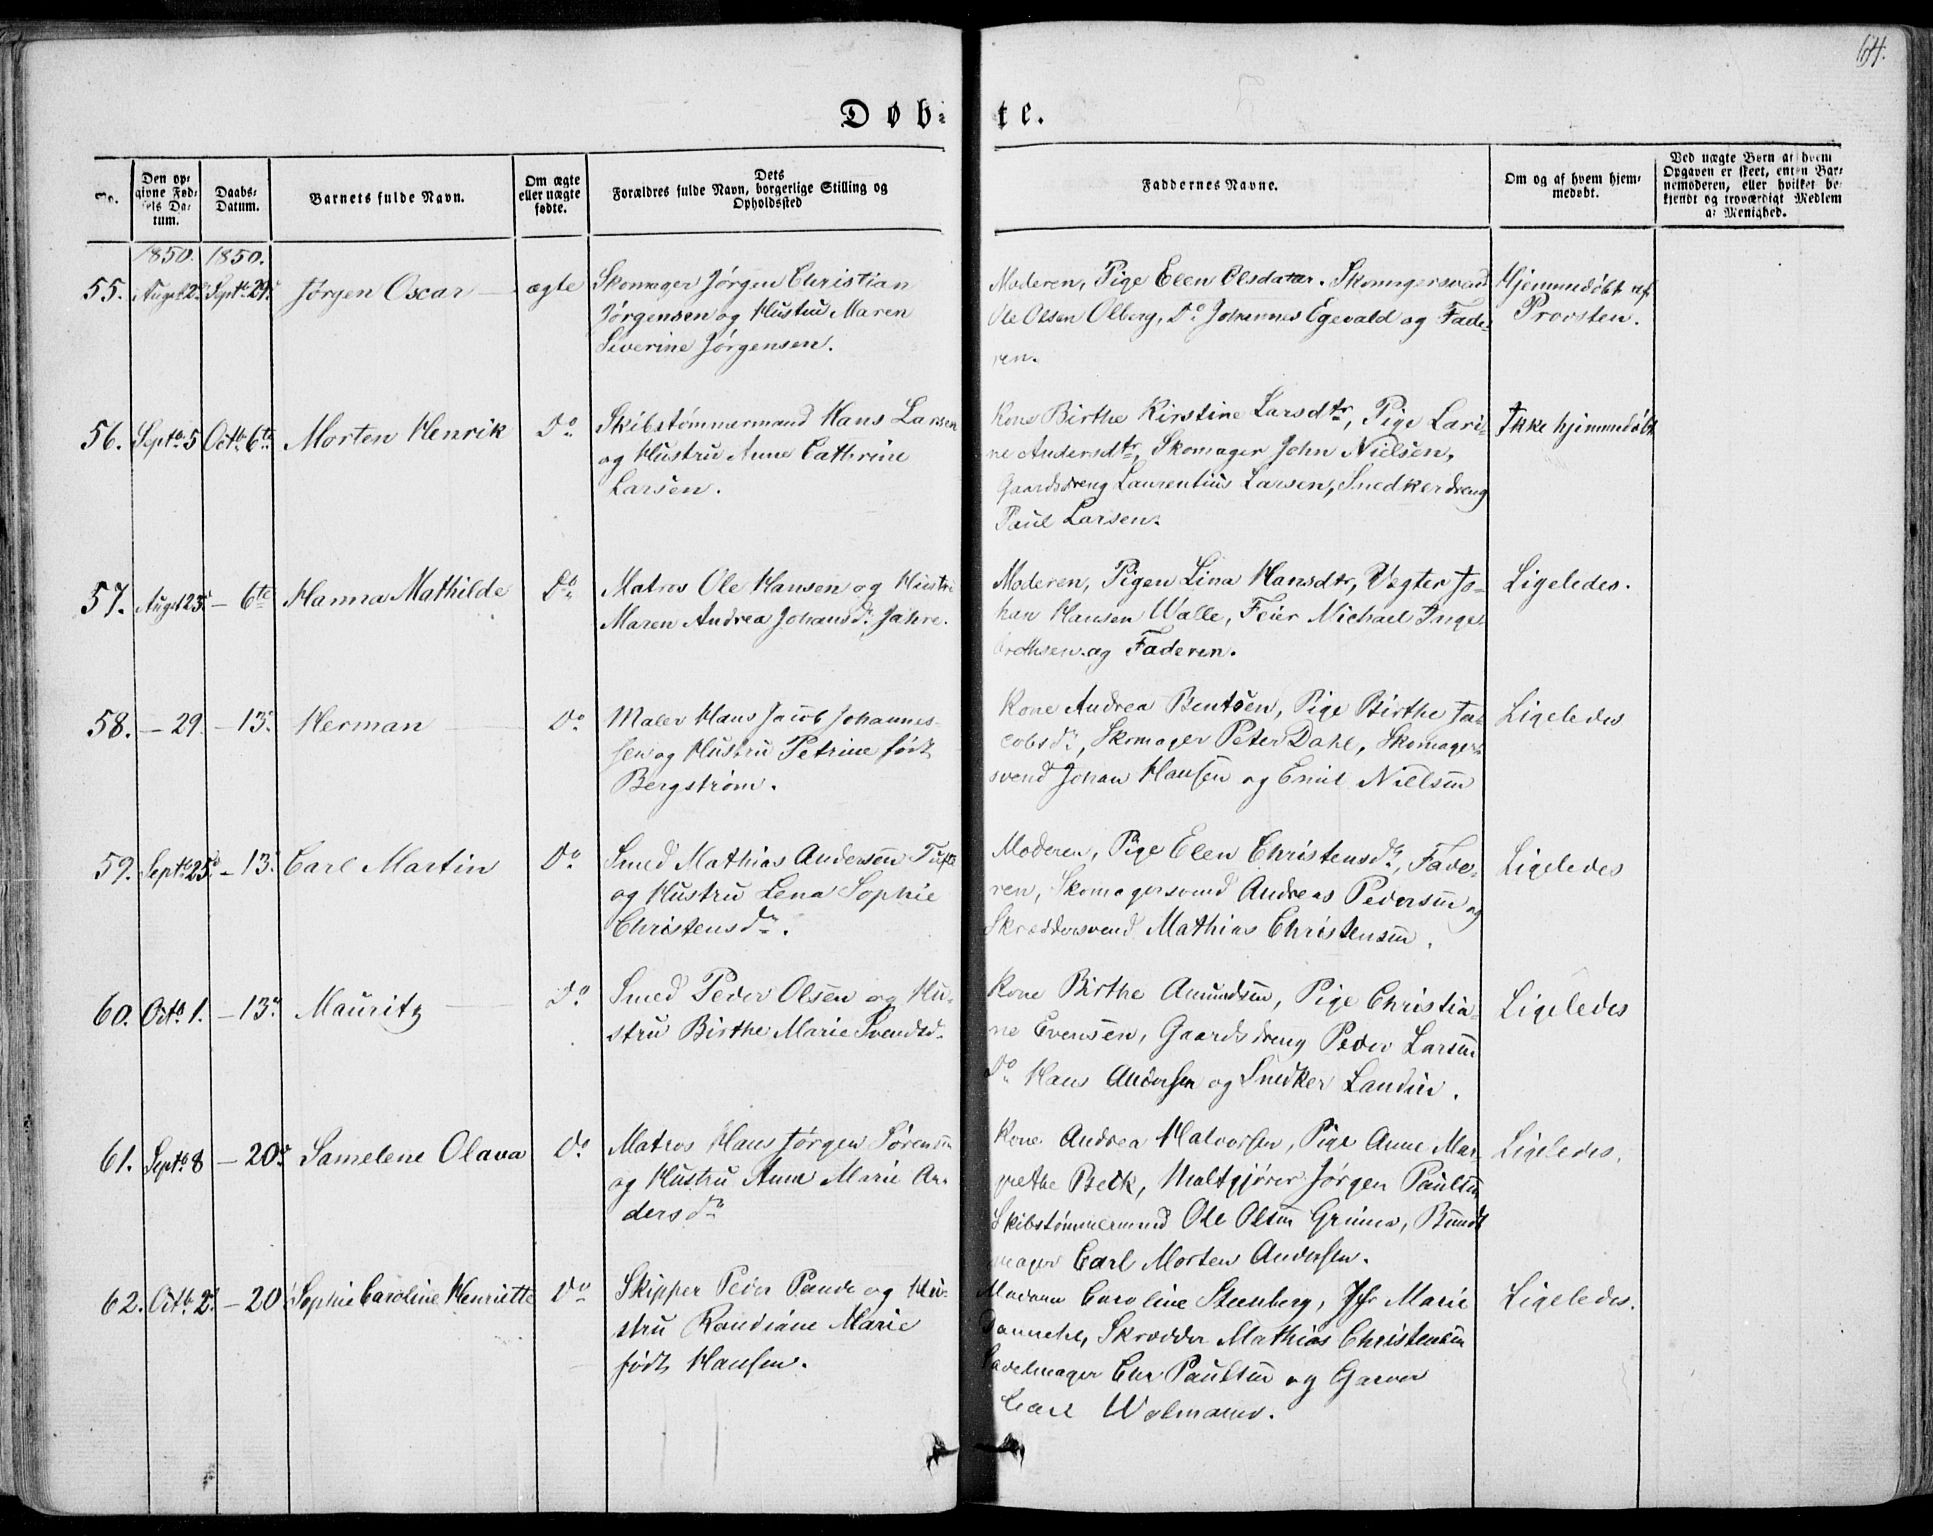 64.
Døb-te.
Den opgivne Fødsels Datum.
Daabs-Datum.
Barnets fulde Navn.
Om ægte eller uægte fødte.
Dets Forældres fulde Navn, borgerlige Stilling og Opholdssted
Faddernes Navne.
Om og af hvem hjemmedøbt.
Ved uægte Børn af hvem Opgaven er skeet, enten Barnemoderen, eller hvilket bekjendt og troværdigt Medlem af Menighed.
1850. 1850.
55. Sept. 29 Jørgen Oscar ægte
Skomager Jørgen Christian
Jørgensen og Hustru Maren
Severine Jørgensen.
Moderen, Pige Elen Olsdatter. Skomagersvend
Ole Olsen Olberg, Do Johannes Egevald og Fade-
ren.
Hjemmedøbt af
Provsten.
56. Septb. 5 Octb. 6te Morten Henrik Do
Skibstømmermand Hans Larsen
og Hustru Anne Cathrine
Larsen.
Kone Birthe Kirstine Larsdtr, Pige Lari-
ne Andersdtr, Skomager John Nielsen,
Gaardsdreng Laurentius Larsen, Snedkerdreng
Paul Larsen.
Ikke hjemmedøbt
57. Augst 23 – 6te Hanna Mathilde Do
Matros Ole Hansen og Hustru
Maren Andrea Johansdr. Jahre.
Moderen, Pigen Lina Hansdtr, Vægter Jo-
han Hansen Walle, Feier Michael Inge-
brethsen og Faderen.
Ligeledes.
58. – 29. – 13. Herman Do
Maler Hans Jacob Johannes-
sen og Hustru Petrine født
Bergstrøm.
Kone Andrea Bentsen, Pige Birthe Ja-
cobsdr, Skomager Peter Dahl, Skomager-
svend Johan Hansen og Emil Nielsen
Ligeledes
59. Septb 25 – 13. Carl Martin Do
Smed Mathias Andersen Tufte
og Hustru Lena Sophie
Christensdr.
Moderen, Pige Elen Christensdr, Fade-
ren, Skomagersvend Andreas Pedersen og
Skræddersvend Mathias Christensen.
Ligeledes
60. Octb 1. – 13. Mauritz Do
Smed Peder Olsen og Hu-
stru Birthe Marie Svendsd.
Kone Birthe Amundsen, Pige Christia-
ne Evensen, Gaardsdreng Peder Larsen
Do Hans Andersen og Snedker Landin.
Ligeledes
61. Septb 8 – 20. Samelene Olava Do
Matros Hans Jørgen Sørensen
og Hustru Anne Marie An-
dersdr
Kone Andrea Halvorsen, Pige Anne Mar-
grethe Beck, Maltgjører Jørgen Paulsen
Skibstømmermand Ole Olsen Grimes, Bundt
mager Carl Morten Andersen.
Ligeledes.
62. Octb. 2 – 20 Sophie Caroline Henriette Do
Skipper Peder Paude og Hu-
stru Randiane Marie
født Hansen.
Madam Caroline Steenberg, Jfr Marie
Skrædder Mathias Christensen
Sadelmager Chr Paulsen og Garver
Carl
Ligeledes.